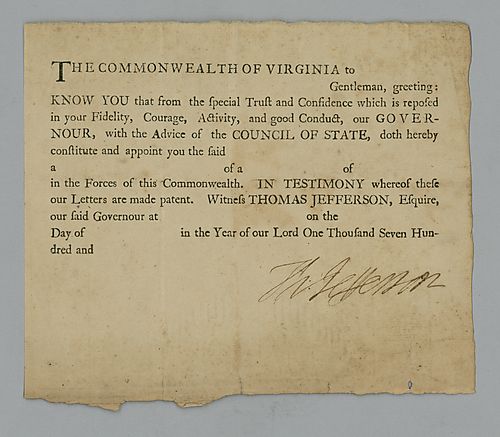 THE COMMONWEALTH OF VIRGINIA to
Gentleman, greeting:
KNOW YOU that from the ſpecial Truſt and Confidence which is repoſed
in your Fidelity, Courage, Activity, and good Conduct, our GOVER-
NOUR, with the Advice of the COUNCIL OF STATE, doth hereby
conſtitute and appoint you the ſaid
a of a of
in the Forces of this Commonwealth. IN TESTIMONY whereof theſe
our Letters are made patent. Witneſs THOMAS JEFFERSON, Eſquire,
our ſaid Governour at on the
Day of in the Year of our Lord One Thouſand Seven Hun-
dred and
Th: Jefferson